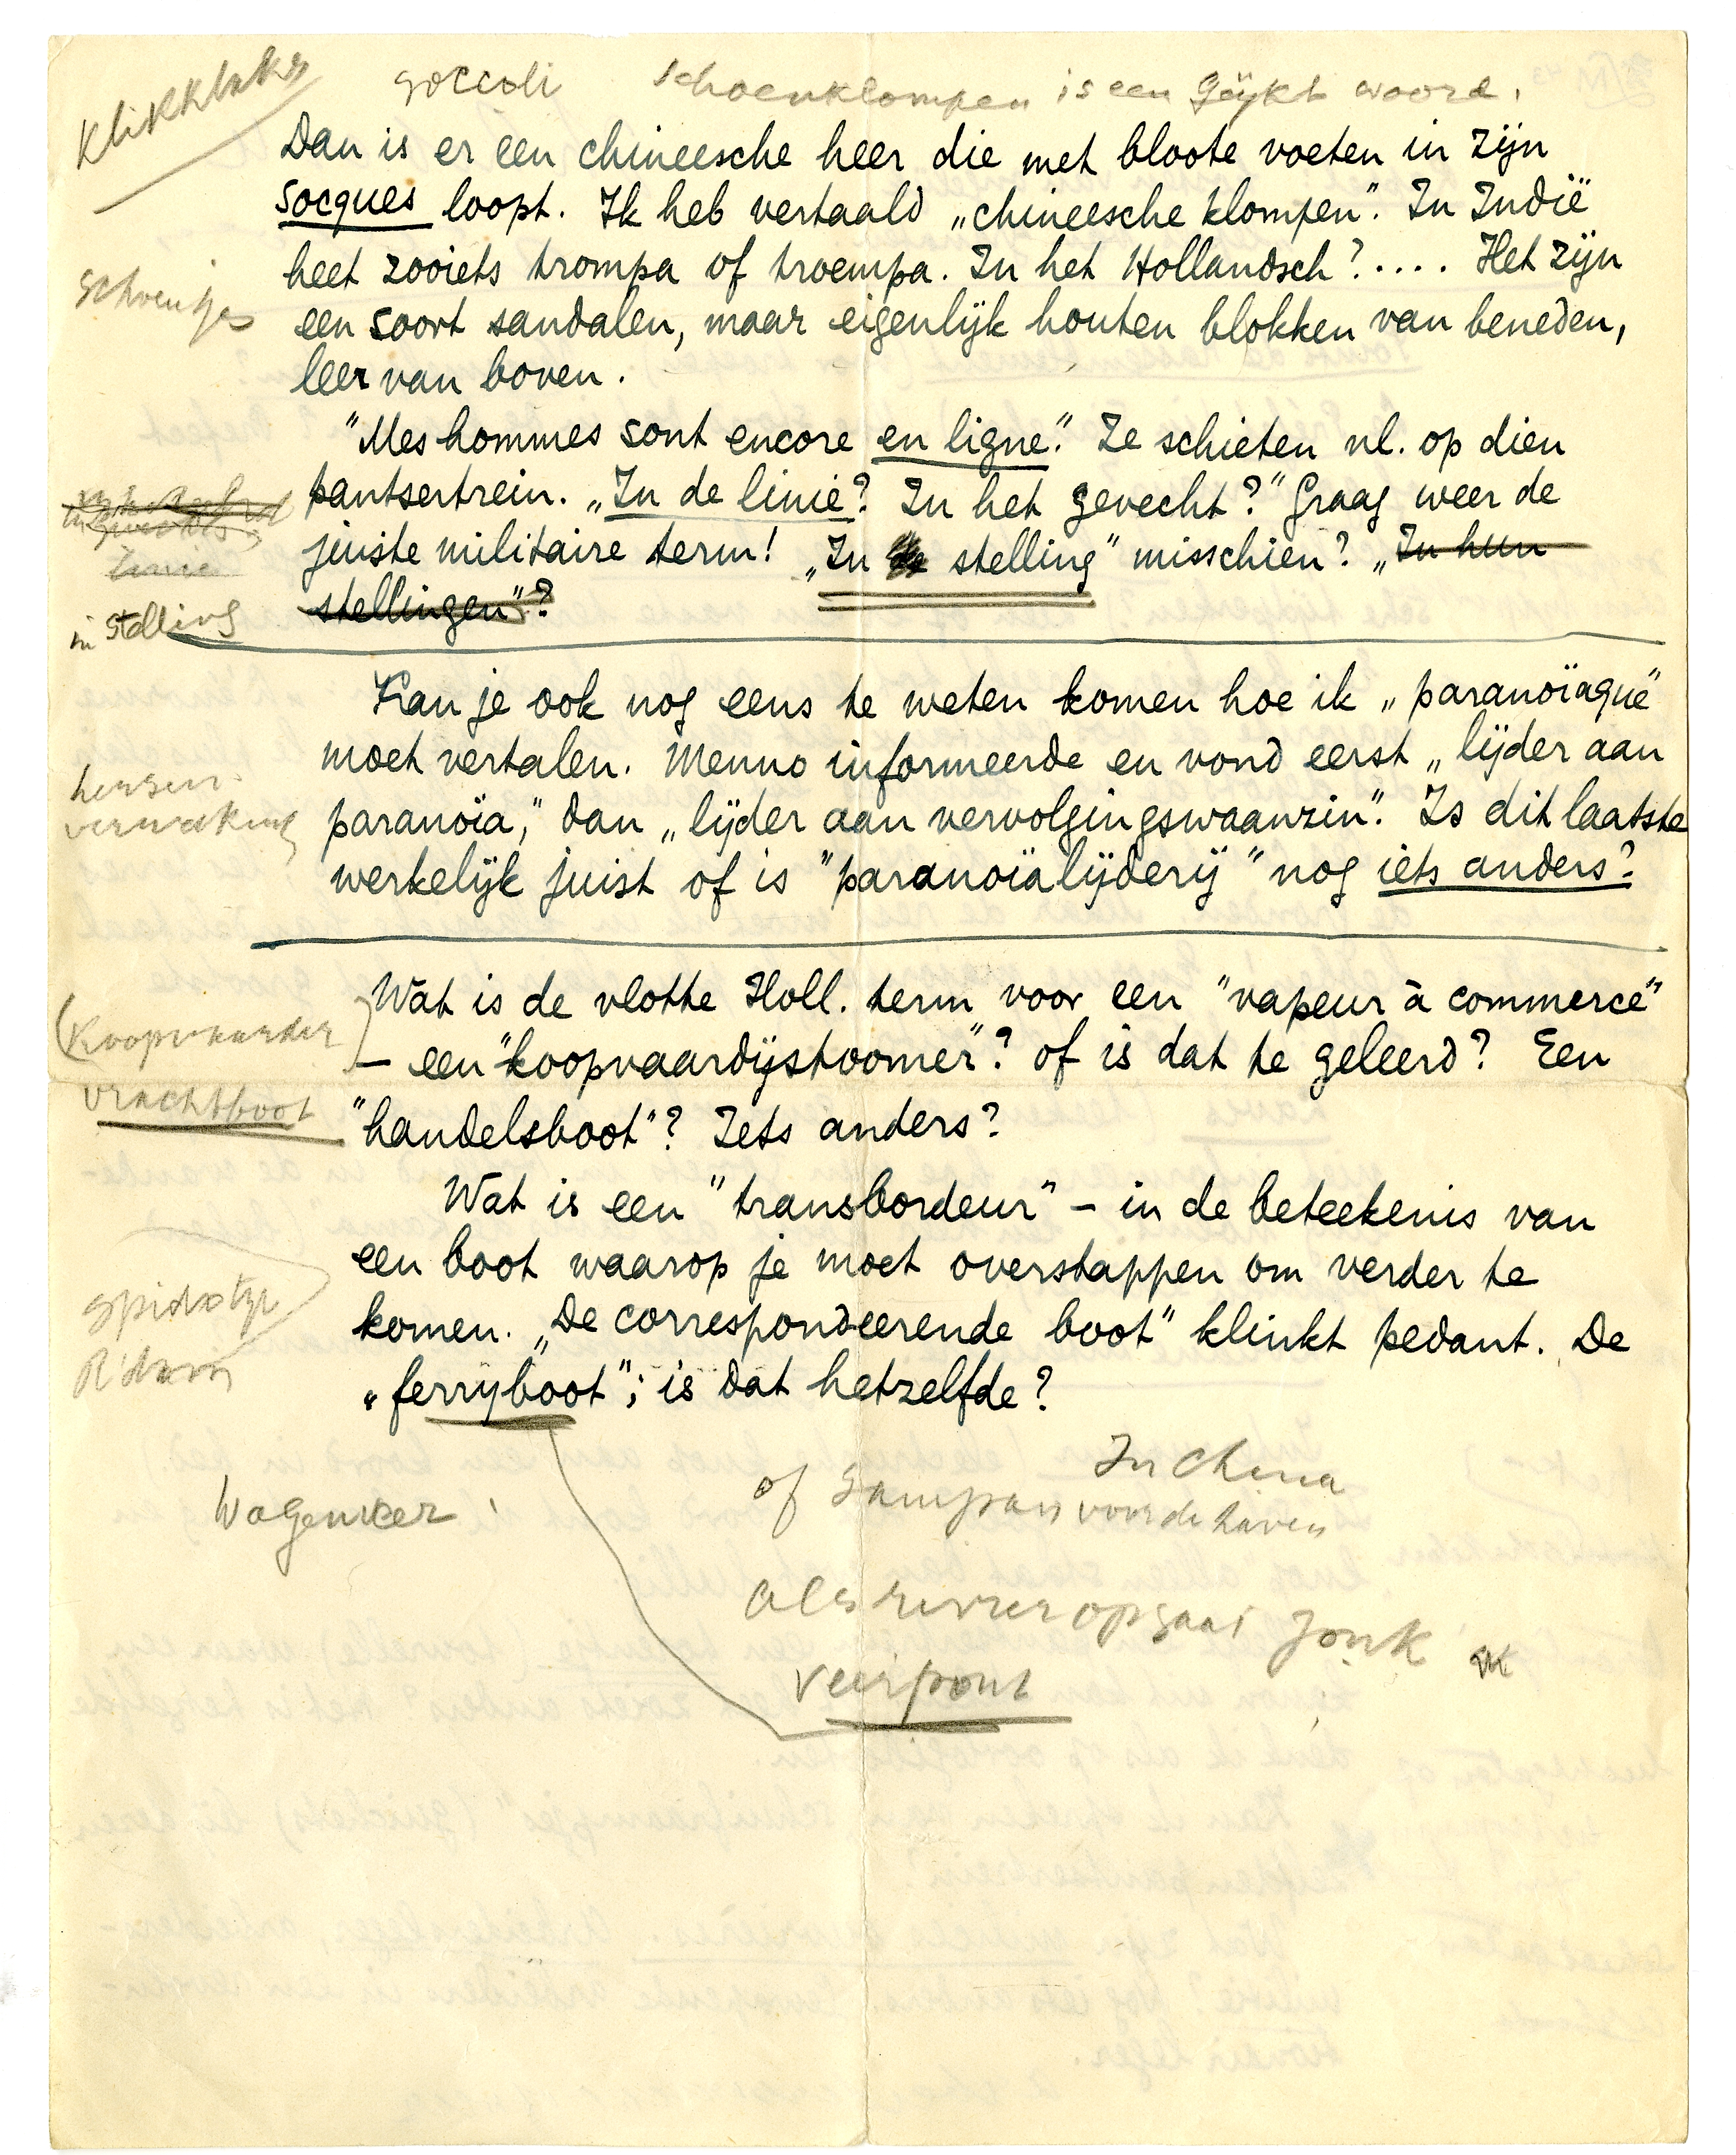 Klikklaks
goccoli schoenklompen is een geijkt woord.
Dan is er een chineesche heer die met bloote voeten in zijn
socques loopt. Ik heb vertaald „chineesche klompen”. In Indië
heet zooiets trompa of troempa. In het Hollandsch?.... Het zijn
schoentjes
een soort sandalen, maar eigenlijk houten blokken van beneden,
leer van boven.
"Mes hommes sont encore en ligne." Ze schieten nl. op dien
pantsertrein. „In de linie? In het gevecht?" Graag weer de
juiste militaire term! „In de stelling" misschien? „In hun
linie
stellingen"?
in stelling
Kan je ook nog eens te weten komen hoe ik „paranoïaque"
moet vertalen. Menno informeerde en vond eerst „lijder aan
hersen
verweeking
paranoïa," dan „lijder aan vervolgingswaanzin". Is dit laatste
werkelijk juist of is "paranoïalijderij" nog iets anders?
Wat is de vlotte Holl. term voor een "vapeur à commerce"
(Koopvaarder)
— een "koopvaardijstoomer"? of is dat te geleerd? Een
vrachtboot
"handelsboot"? Iets anders?
Wat is een "transbordeur" – in de beteekenis van
een boot waarop je moet overstappen om verder te
komen. „De correspondeerende boot" klinkt pedant. De
„ferryboot"; is dat hetzelfde?
In China
of Sampan voor de haven
Wagenveer
Als rivier opgaat Jonk
veerpont